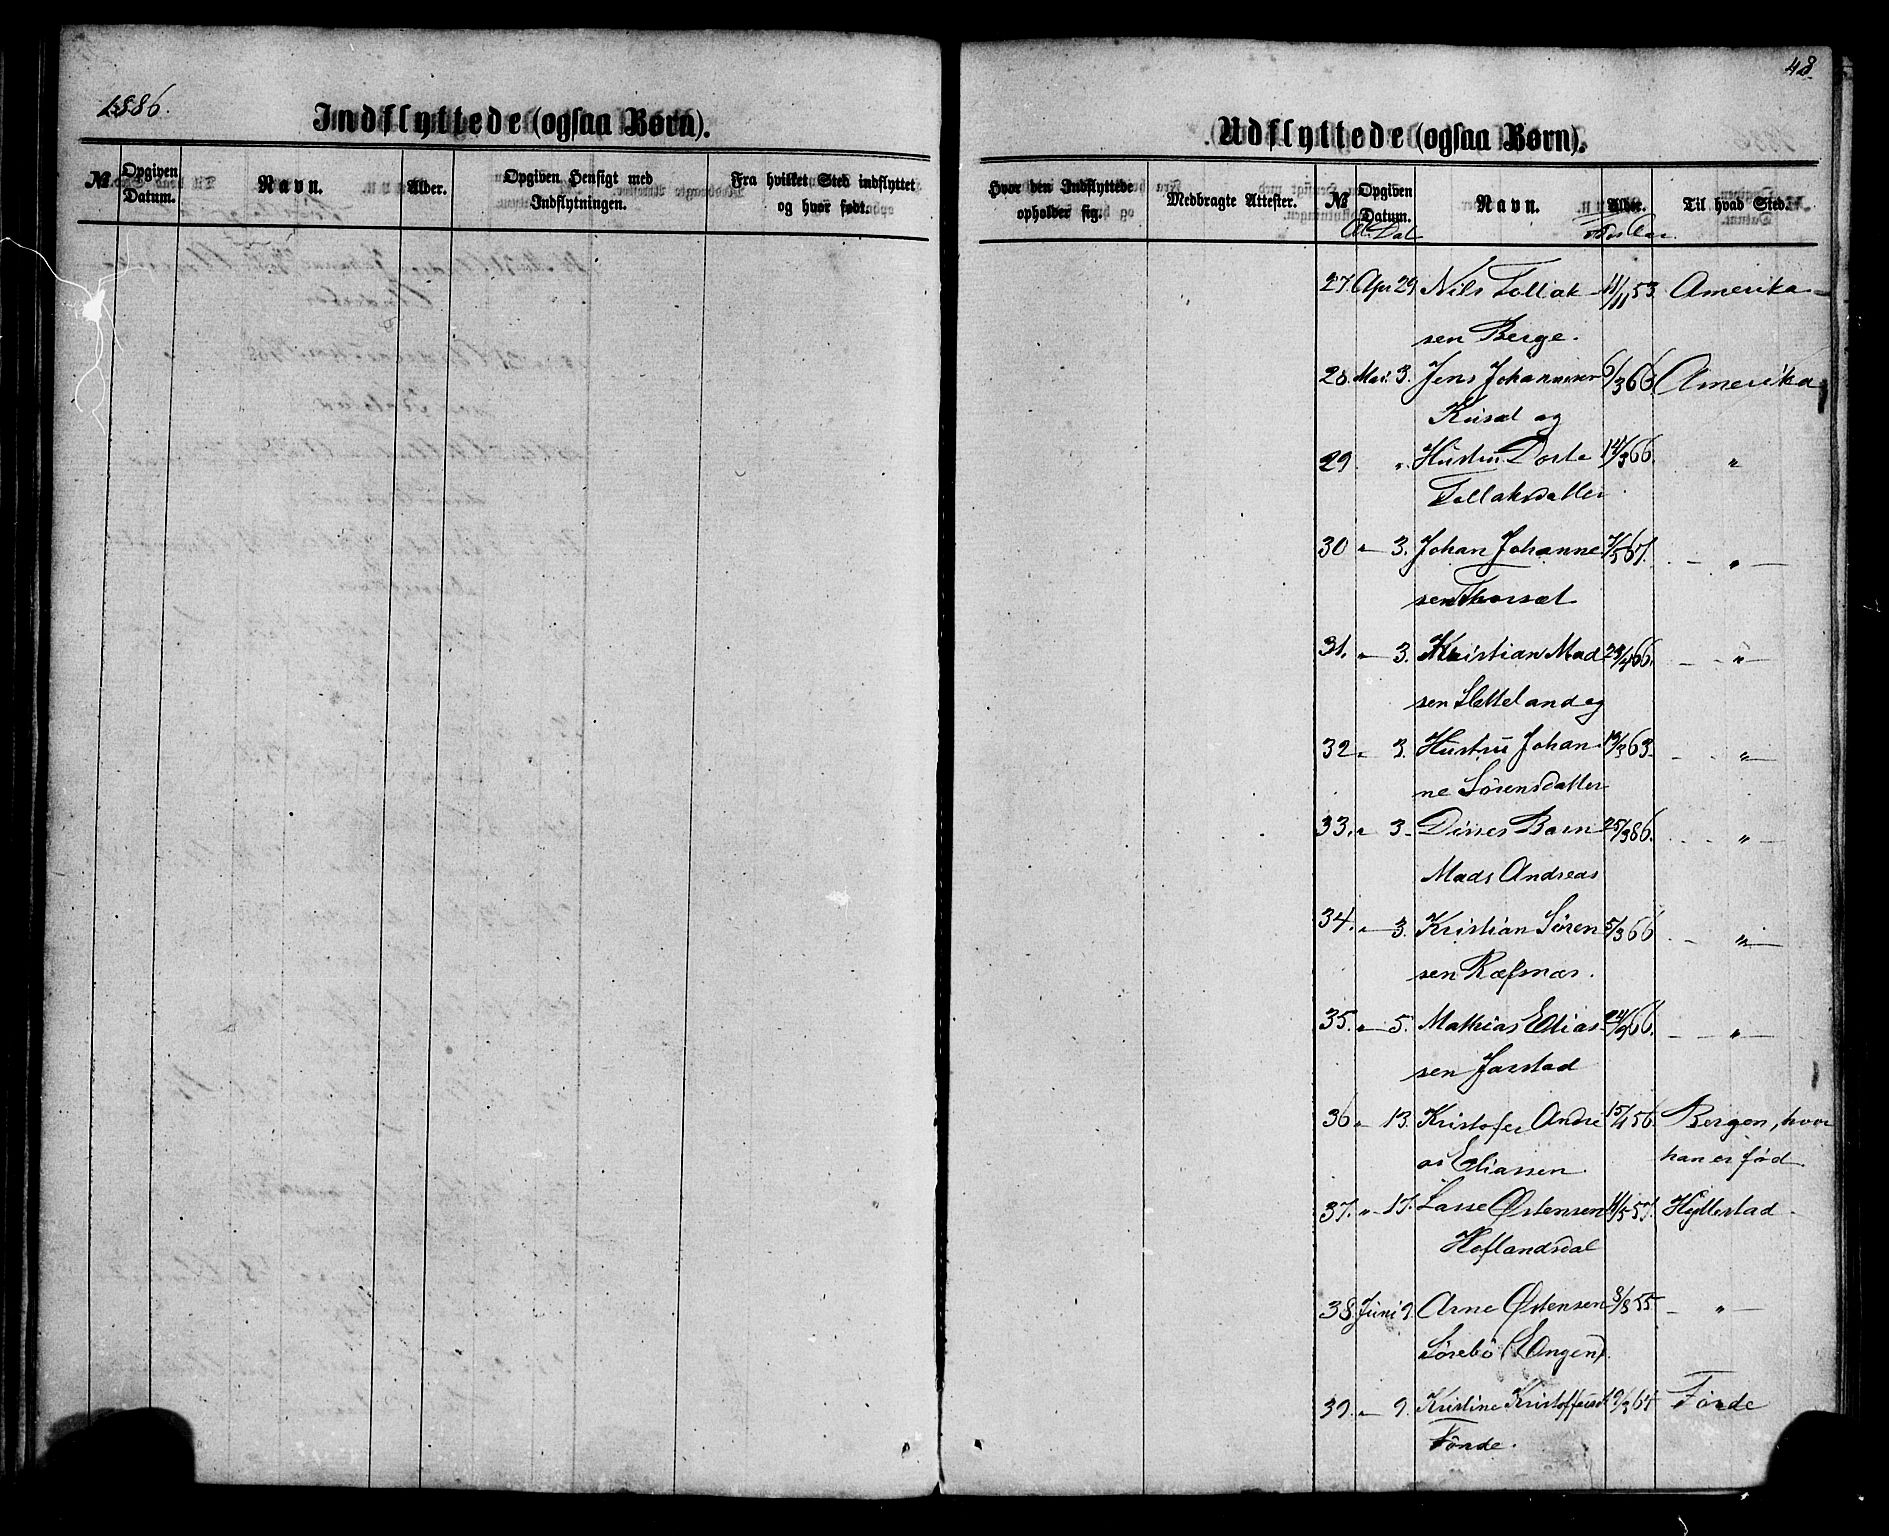 1886.
Indflyttede (ogsaa Børn).
№
Opgiven Datum.
Navn.
Alder.
Opgiven Hensigt med Indflytningen.
Fra hvilket Sted indflyttet og hvor født.
48.
Udflyttede (ogsaa Børn).
Hvor den Indflyttede opholder sig.
Medbragte Attester.
№
Opgiven Datum.
Navn.
Alder.
Til hvad Sted.
27. Apr 29 Nils Tollak- 11/11 53. Amerika
sen Berge.
28. Mai 3. Jens Johannesen 6/3 66. Amerika
og
29 " Hustru Dorte 14/3 66. "
Tollaksdatter.
30 " 3. Johan Johanne 7/5 67. "
sen Thorsæt
31. " 3. Kristian Mad 28/4 66. "
sen Sletteland og
32 " 3. Hustru Johan- 19/3 63. "
ne Sørensdatter
33. " 3. Disses Barn 25/3 86. "
Mads Andreas
34. " 3. Kristian Søren 5/3 66 "
sen Ræfsnæs.
35. " 5. Mathias Elias- 24/9 66. "
sen Jarstad
36 " 13. Kristofer Andre 15/4 56. Bergen, hvor
as Eliassen han er fød
37. " 17. Lasse Østensen 11/5 57. Hyllestad
Hoflandsdal
38. Juni 9. Arne Østensen 8/8 55. "
Sørebø (Engen).
39. " 9. Kristine Kristoffersd 19/3 64 Førde
Førde.